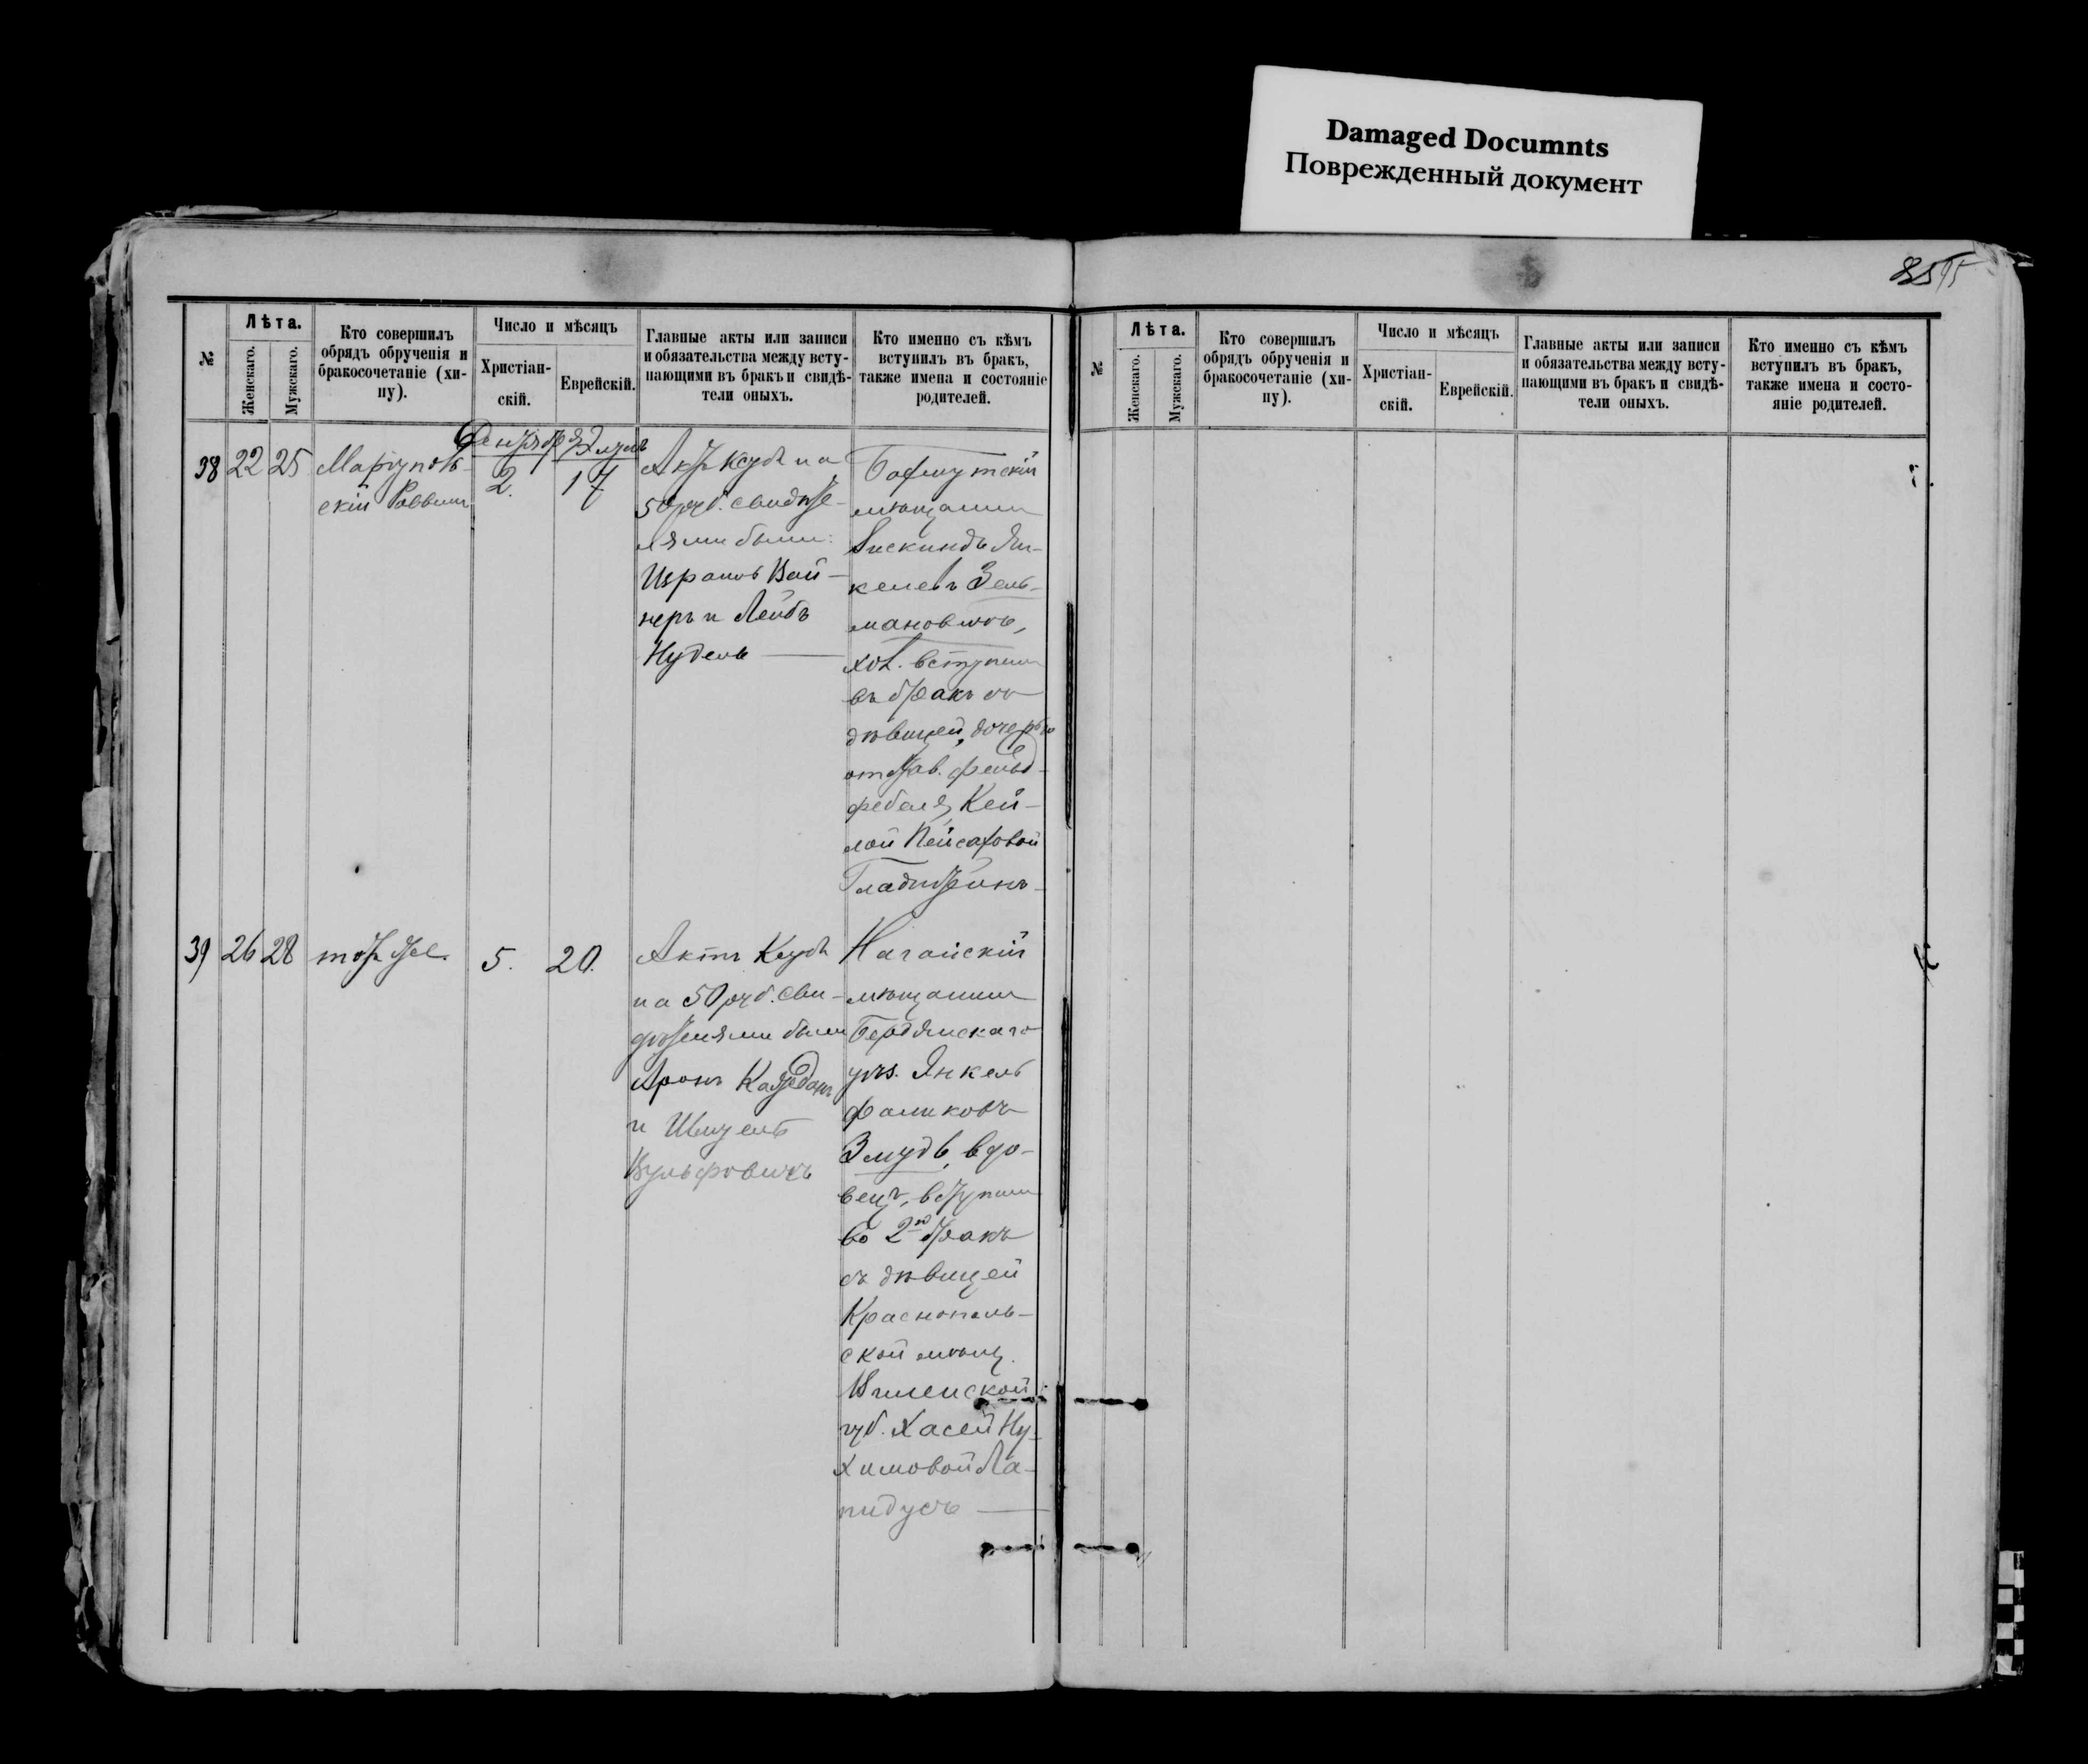 Damaged Documnts
Поврежденный документ
№
Лѣта.
Женскаго.
Мужскаго.
Кто совершилъ
обрядъ обрученія и
бракосочетаніе (хи-
пу).
Число и мѣсяцъ
Христіан-
скій.
Еврейскій.
Главные акты или записи
и обязательства между всту-
пающими въ бракъ и свидѣ-
тели оныхъ.
Кто именно съ кѣмъ
вступилъ въ бракъ,
также имена и состояніе
родителей.
38
22
25
Маріуполь-
скій Раввинъ
Сентябрь
2.
Элулъ
17
Актъ Ксубъ на
50 руб. свидѣте-
лями были:
Израиль Вай-
неръ и Лейбъ
Нудель
Бахмутскій
мѣщанинъ
Зискиндъ Ян-
келевъ Зель-
мановичъ,
хол. вступилъ
въ бракъ съ
дѣвицей, дочерью
отстав. фельд-
фебеля, Кей-
лой Пейсаховой
Гладштейнъ
39
26
28
тотъ же.
5.
20.
Актъ Ксубъ
на 50 руб. Сви-
дѣтелями были
Аронъ Кажданъ
и Шмуель
Вульфовичъ
Ногайскій
мѣщанинъ
Бердянскаго
уѣз. Янкель
Фаликовъ
Змудъ, вдо-
вецъ, вступилъ
во 2й бракъ
съ дѣвицей
Краснополь-
ской мѣщ.
Виленской
губ. Хасей Ну-
химовой Ла-
пидусъ
№
Лѣта.
Женскаго.
Мужскаго.
Кто совершилъ
обрядъ обрученія и
бракосочетаніе (хи-
пу).
Число и мѣсяцъ
Христіан-
скій.
Еврейскій.
Главные акты или записи
и обязательства между всту-
пающими въ бракъ и свидѣ-
тели оныхъ.
Кто именно съ кѣмъ
вступилъ въ бракъ,
также имена и состо-
яніе родителей.